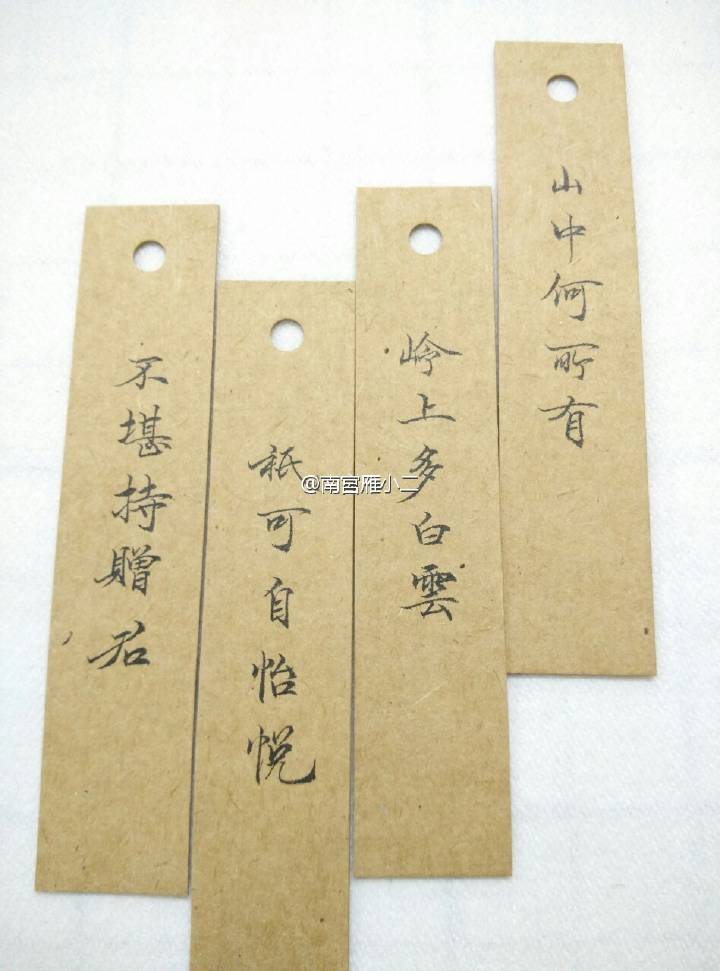 山中何所有
岭上多白雲
祇可自怡悦
不堪持贈君
@南宫雁小二